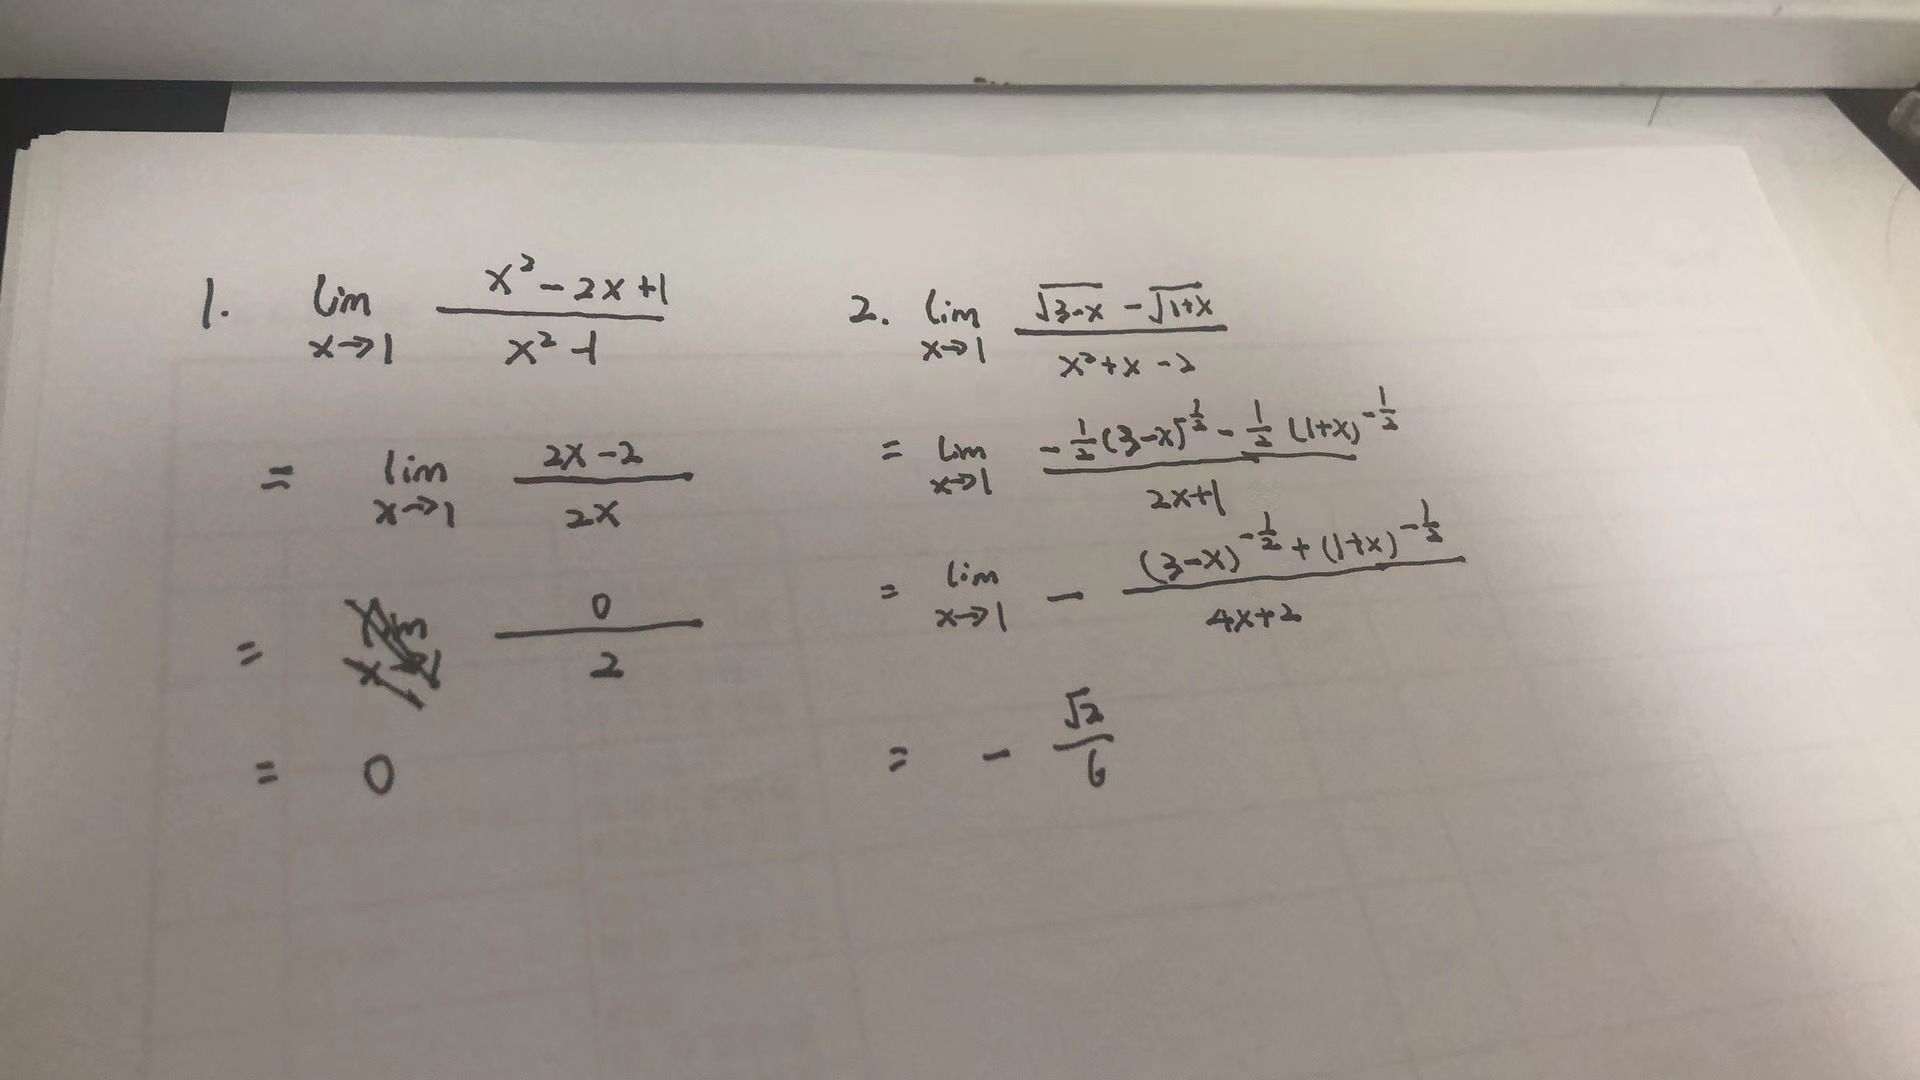 1. lim x→1 (x² - 2x + 1)/(x² - 1)
= lim x→1 (2x - 2)/(2x)
= 0/2
= 0
2. lim x→1 (√(3-x) - √(1+x))/(x² + x - 2)
= lim x→1 (-1/2 (3-x)^(-1/2) - 1/2 (1+x)^(-1/2))/(2x+1)
= lim x→1 - ((3-x)^(-1/2) + (1+x)^(-1/2))/(4x+2)
= - √2/6